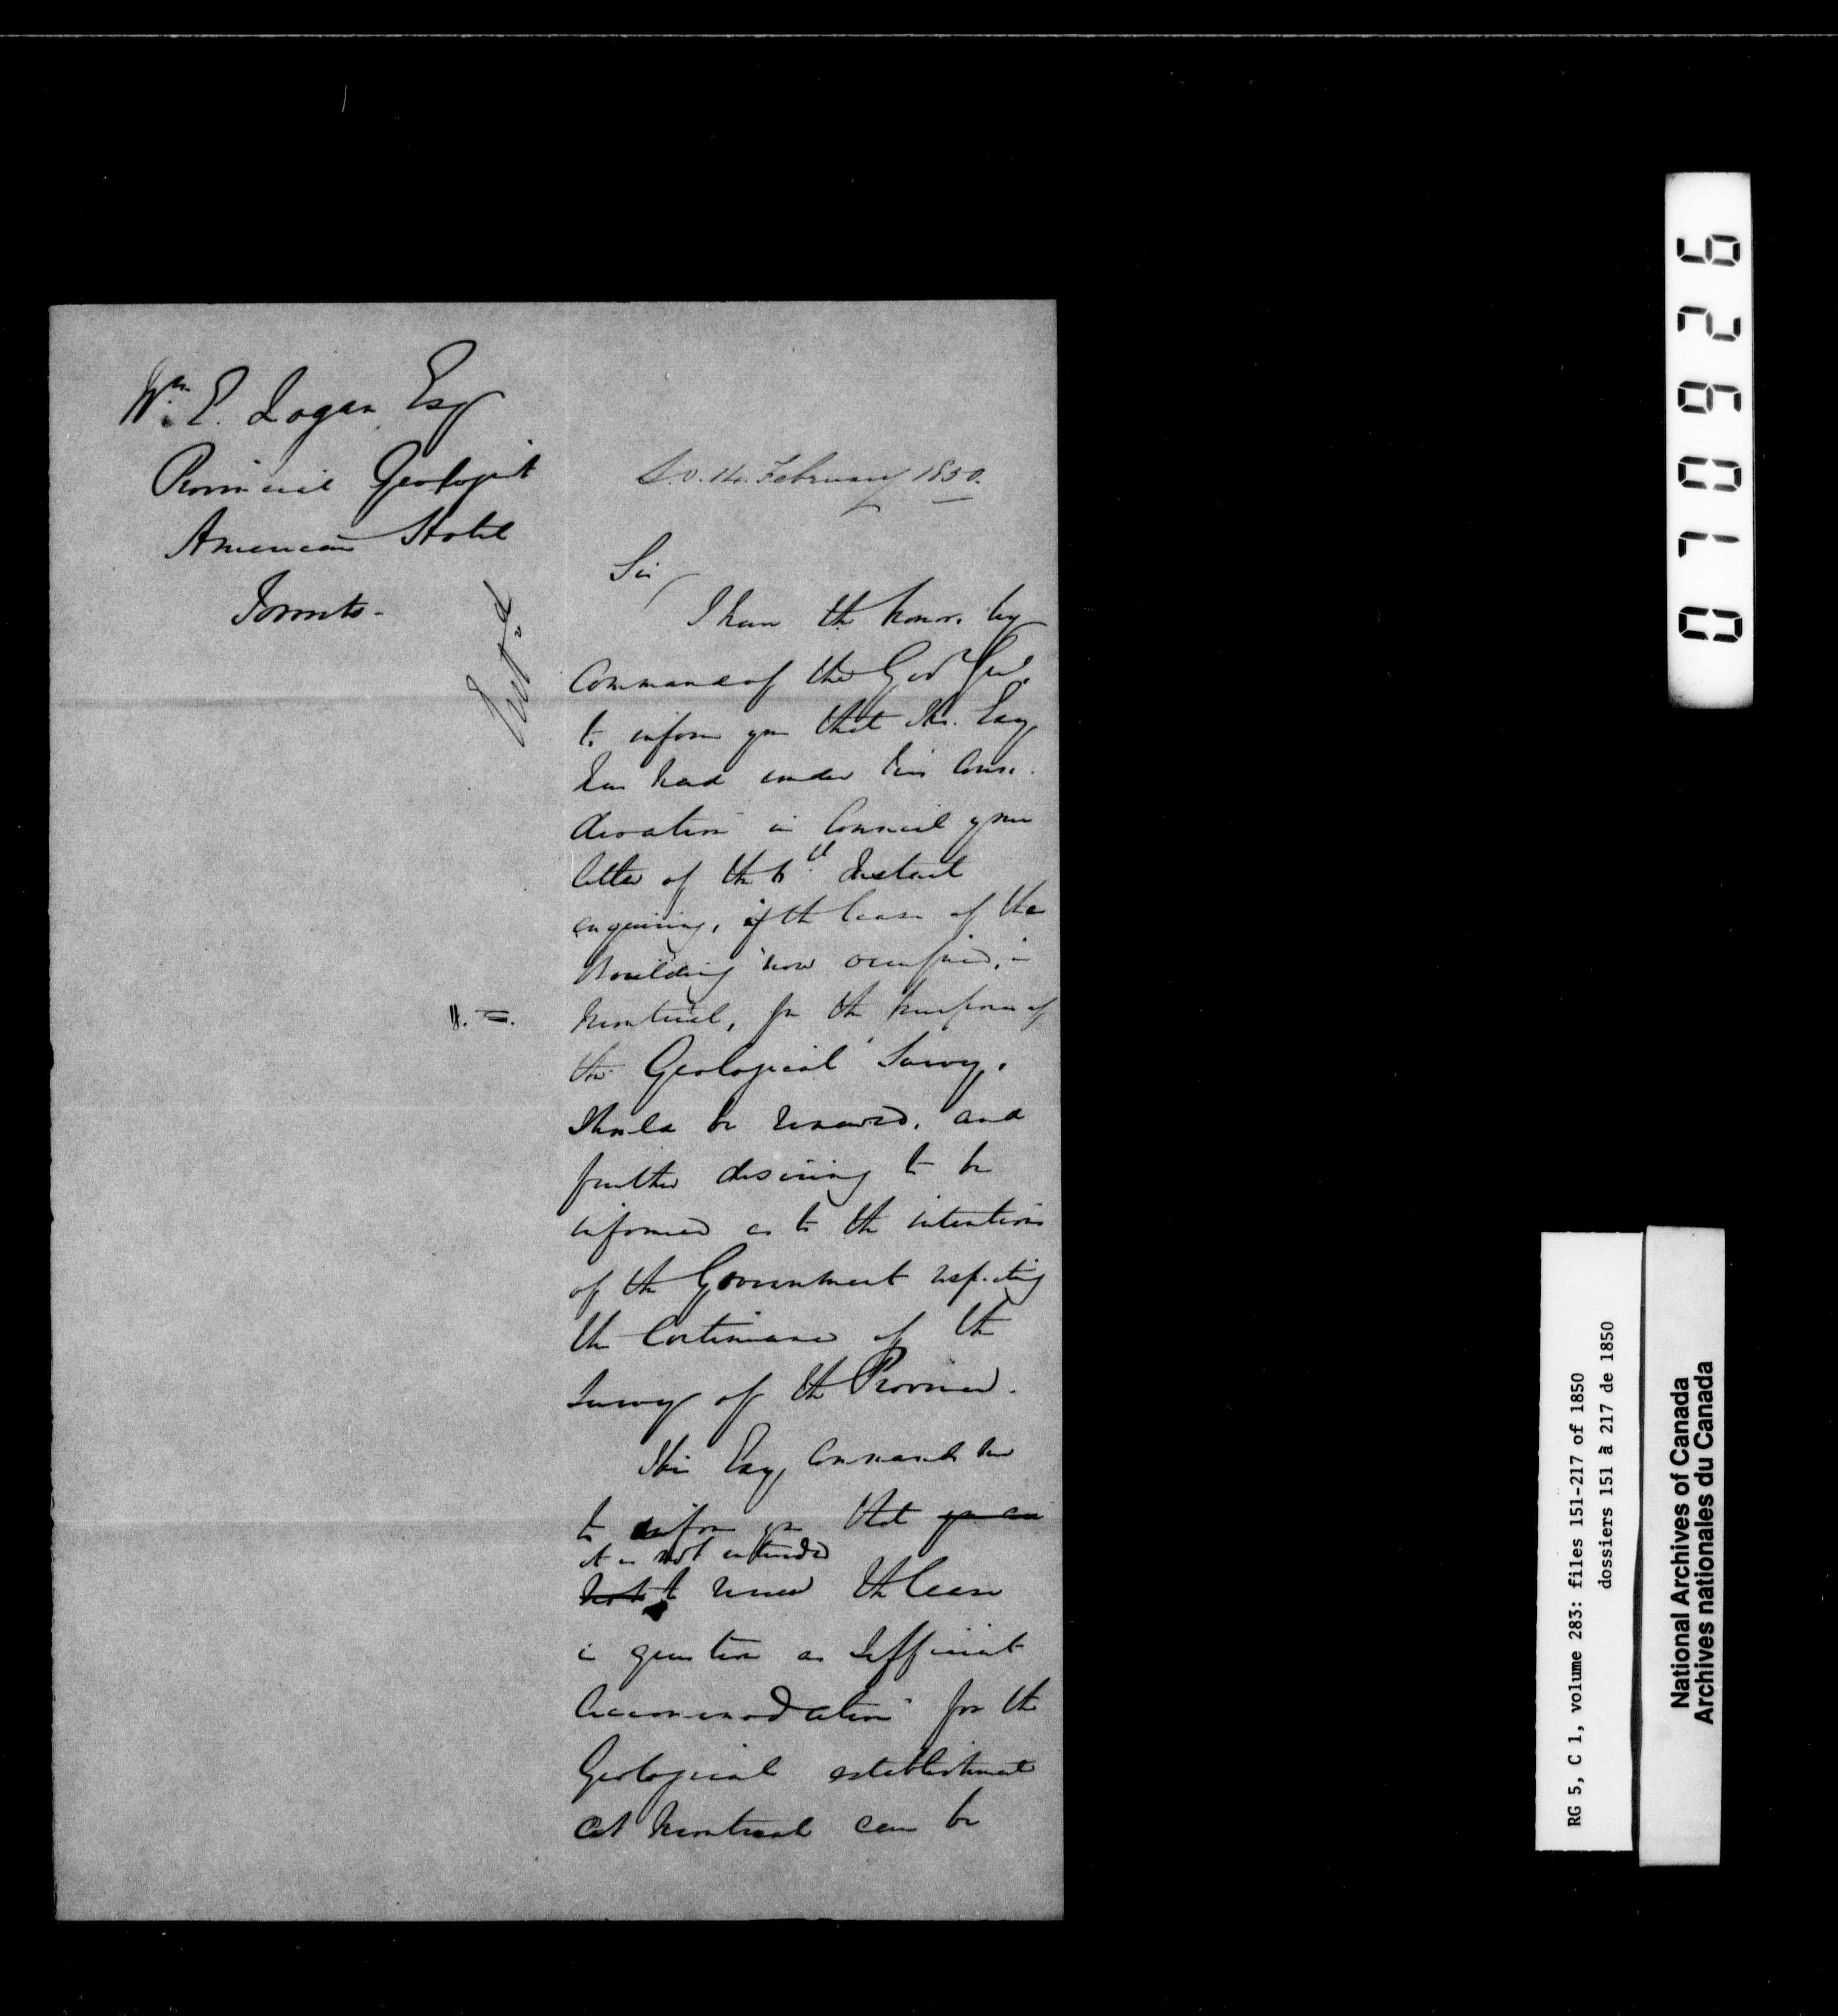 Wm. E. Logan Esq
Provincial Geologist
American Hotel
Toronto-
S.O. 14. February 1850.
Sir
I have the honor, by
Command of the Govr Genl.
to inform you that His Excy
has had under his Consi-
deration in Council your
letter of the 6th Instant
enquiring, if the lease of the
building now occupied, in
Montreal, for the purposes of
the Geological Survey,
should be renewed, and
further desiring to be
informed as to the intentions
of the Government respecting
the Continuance of the
Survey of the Province.
His Excy Commands me
to inform you that you are
it is not intended
not to renew the lease
in question as sufficient
accommodation for the
Geological establishment
at Montreal can be
070926
RG 5, C 1, volume 283: files 151-217 of 1850
dossiers 151 à 217 de 1850
National Archives of Canada
Archives nationales du Canada